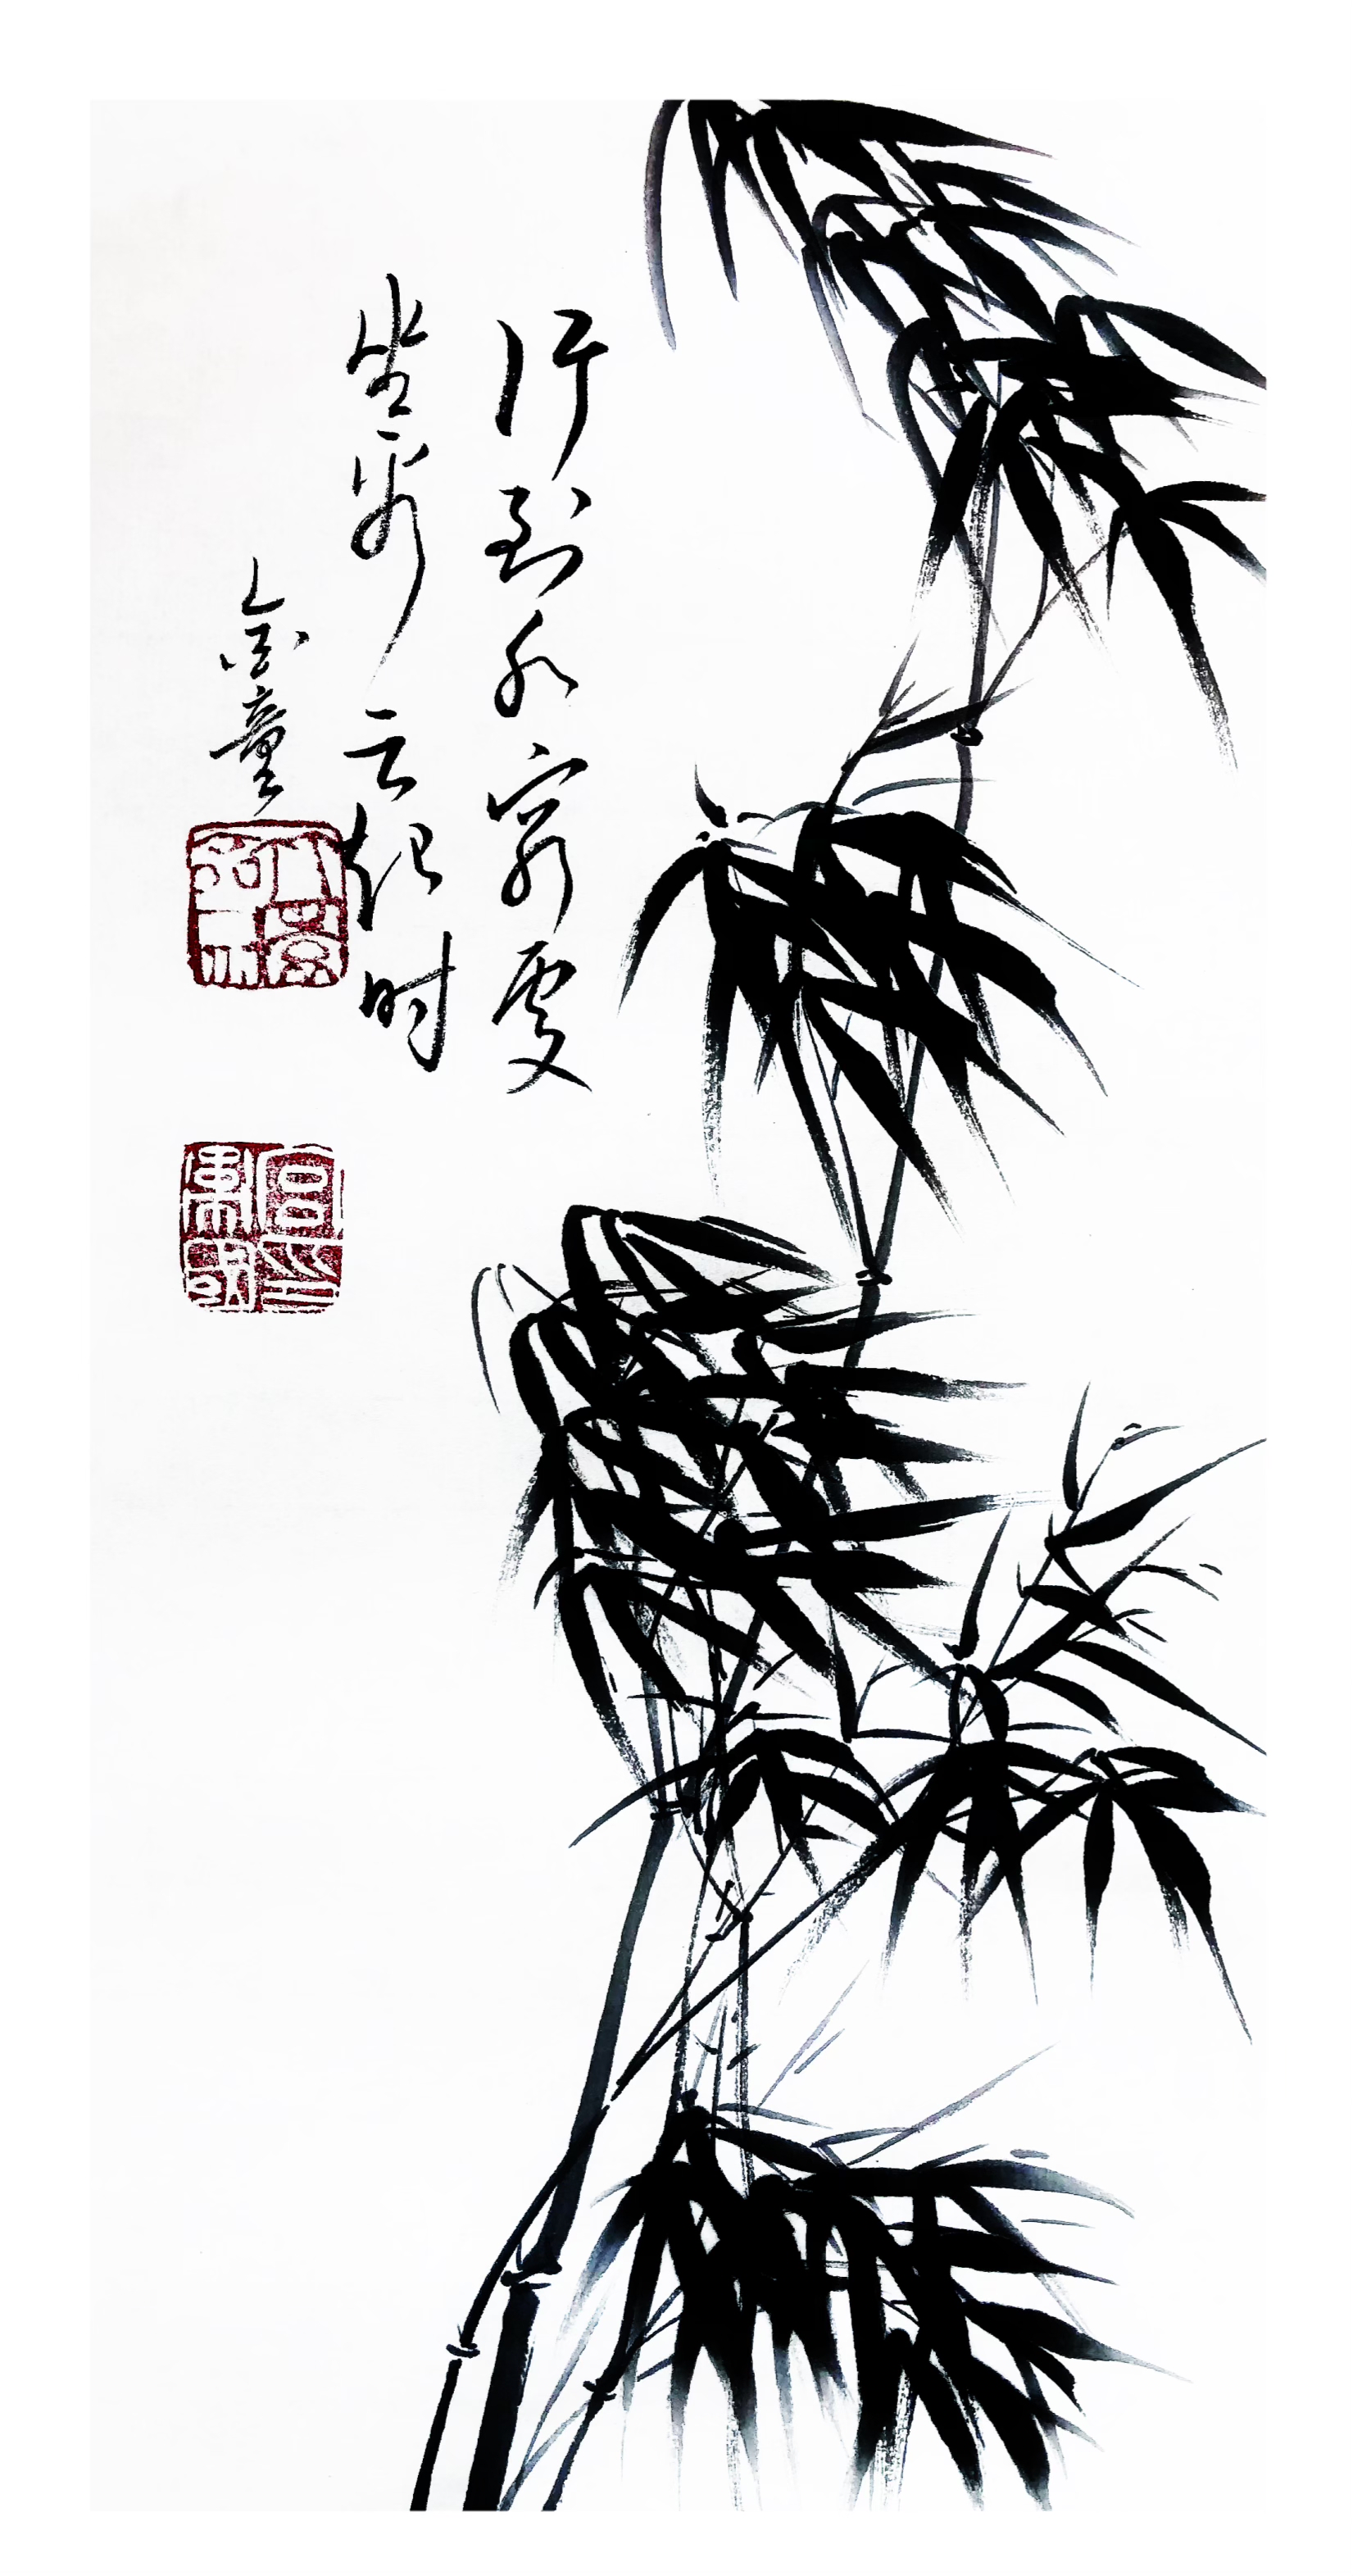 行到水穷处
坐看云起时
金童